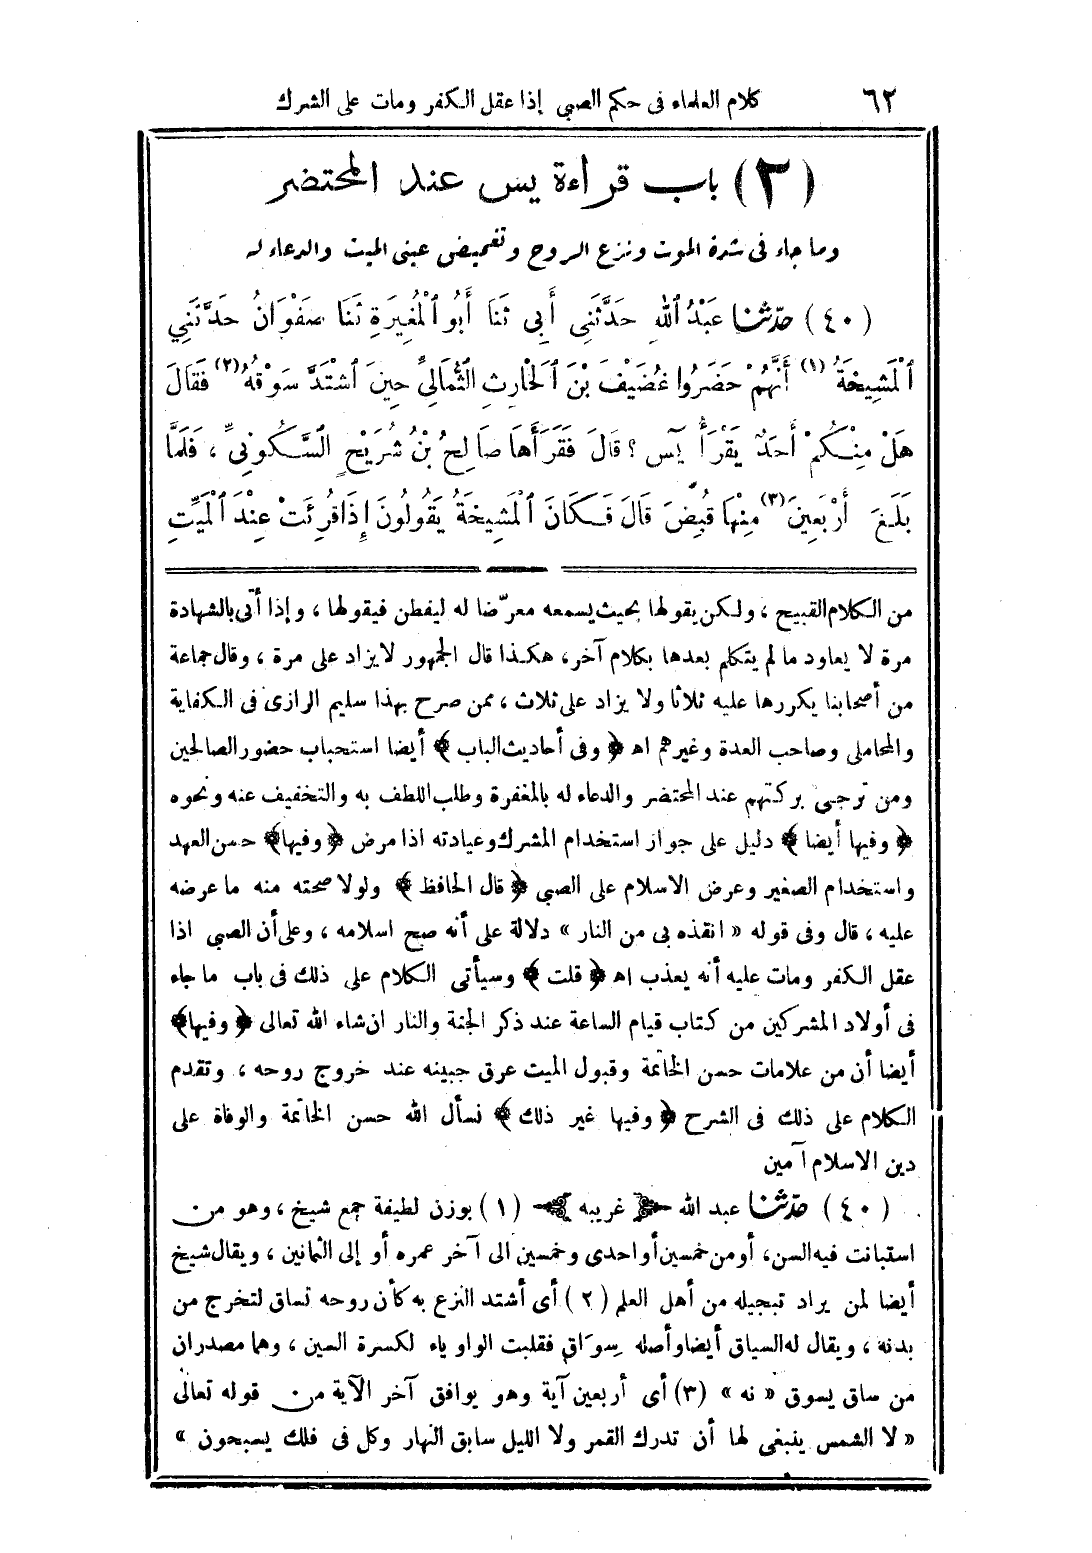 ٦٢ كلام العلماء فى حكم الصبي إذا عقل الكفر ومات على الشرك
(٣) باب قراءة يس عند المحتضر
وما جاء فى شدة الموت ونزع الروح وتغميض عينى الميت والدعاء له
(٤٠) حدّثنا عَبْدُ ٱللهِ حَدَّثَنِى أَبِى ثَنَا أَبُو ٱلْمُغِيرَةِ ثَنَا صَفْوَانُ حَدَّثَنِي
ٱلْمَشِيخَةُ (١) أَنَّهُمْ حَضَرُوا غُضَيْفَ بْنَ ٱلْحَارِثِ الثُّمَالِيَّ حِينَ ٱشْتَدَّ سَوْقُهُ (٢) فَقَالَ
هَلْ مِنْكُمْ أَحَدٌ يَقْرَأُ يٰسٓ ؟ قَالَ فَقَرَأَهَا صَالِحُ بْنُ شُرَيْحٍ ٱلسَّكُونِيُّ ، فَلَمَّا
بَلَغَ أَرْبَعِينَ (٣) مِنْهَا قُبِضَ قَالَ فَكَانَ ٱلْمَشِيخَةُ يَقُولُونَ إِذَا قُرِئَتْ عِنْدَ ٱلْمَيِّتِ
من الكلام القبيح ، ولكن يقولها بحيث يسمعه معرّضا له ليفطن فيقولها ، وإذا أتى بالشهادة
مرة لا يعاود ما لم يتكلم بعدها بكلام آخر، هكذا قال الجمهور لا يزاد على مرة ، وقال جماعة
من أصحابنا يكررها عليه ثلاثا ولا يزاد على ثلاث ، ممن صرح بهذا سليم الرازى فى الكفاية
والمحاملى وصاحب العدة وغيرهم اهـ ﴿ وفى أحاديث الباب ﴾ أيضا استحباب حضور الصالحين
ومن ترجى بركتهم عند المحتضر والدعاء له بالمغفرة وطلب اللطف به والتخفيف عنه ونحوه
﴿ وفيها أيضا ﴾ دليل على جواز استخدام المشرك وعيادته اذا مرض ﴿ وفيها ﴾ حسن العهد
واستخدام الصغير وعرض الاسلام على الصبى ﴿ قال الحافظ ﴾ ولولا صحته منه ما عرضه
عليه ، قال وفى قوله « انقذه بى من النار » دلالة على أنه صح اسلامه ، وعلى أن الصبى اذا
عقل الكفر ومات عليه أنه يعذب اهـ ﴿ قلت ﴾ وسيأتى الكلام على ذلك فى باب ما جاء
فى أولاد المشركين من كتاب قيام الساعة عند ذكر الجنة والنار ان شاء الله تعالى ﴿ وفيها ﴾
أيضا أن من علامات حسن الخاتمة وقبول الميت عرق جبينه عند خروج روحه ، وتقدم
الكلام على ذلك فى الشرح ﴿ وفيها غير ذلك ﴾ نسأل الله حسن الخاتمة والوفاة على
دين الاسلام آمين
(٤٠) حدّثنا عبد الله غريبه (١) بوزن لطيفة جمع شيخ ، وهو من
استبانت فيه السن، أو من خمسين أو احدى وخمسين الى آخر عمره أو إلى الثمانين ، ويقال شيخ
أيضا لمن يراد تبجيله من أهل العلم (٢) أى أشتد النزع به كأن روحه تساق لتخرج من
بدنه ، ويقال له السياق أيضا وأصله سِوَاق فقلبت الواو ياء لكسرة السين ، وهما مصدران
من ساق يسوق « نه » (٣) أى أربعين آية وهو يوافق آخر الآية من قوله تعالى
« لا الشمس ينبغى لها أن تدرك القمر ولا الليل سابق النهار وكل فى فلك يسبحون »